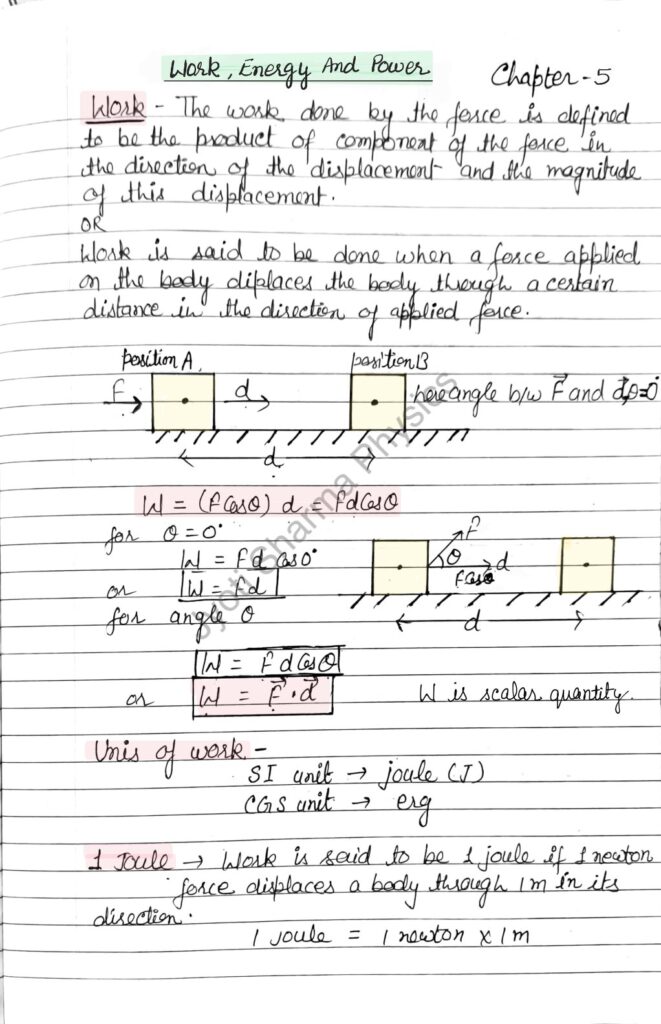 Work, Energy And Power
Chapter-5
Work - The work done by the force is defined
to be the product of component of the force in
the direction of the displacement and the magnitude
of this displacement.
OR
Work is said to be done when a force applied
on the body diplaces the body through a certain
distance in the direction of applied force.
position A
position B
F
d
here angle b/w F⃗ and d⃗, θ=0°
d
W = (F Cosθ) d = Fd Cosθ
for θ = 0°
W = Fd cos 0°
or W = Fd
for angle θ
F
θ
d
F Cosθ
d
W = F d Cosθ
or W = F⃗ · d⃗
W is scalar quantity.
Jyoti Sharma Physics
Unis of work -
SI unit → joule (J)
CGS unit → erg
1 Joule → Work is said to be 1 joule if 1 newton
force displaces a body through 1m in its
direction.
1 Joule = 1 newton x 1m